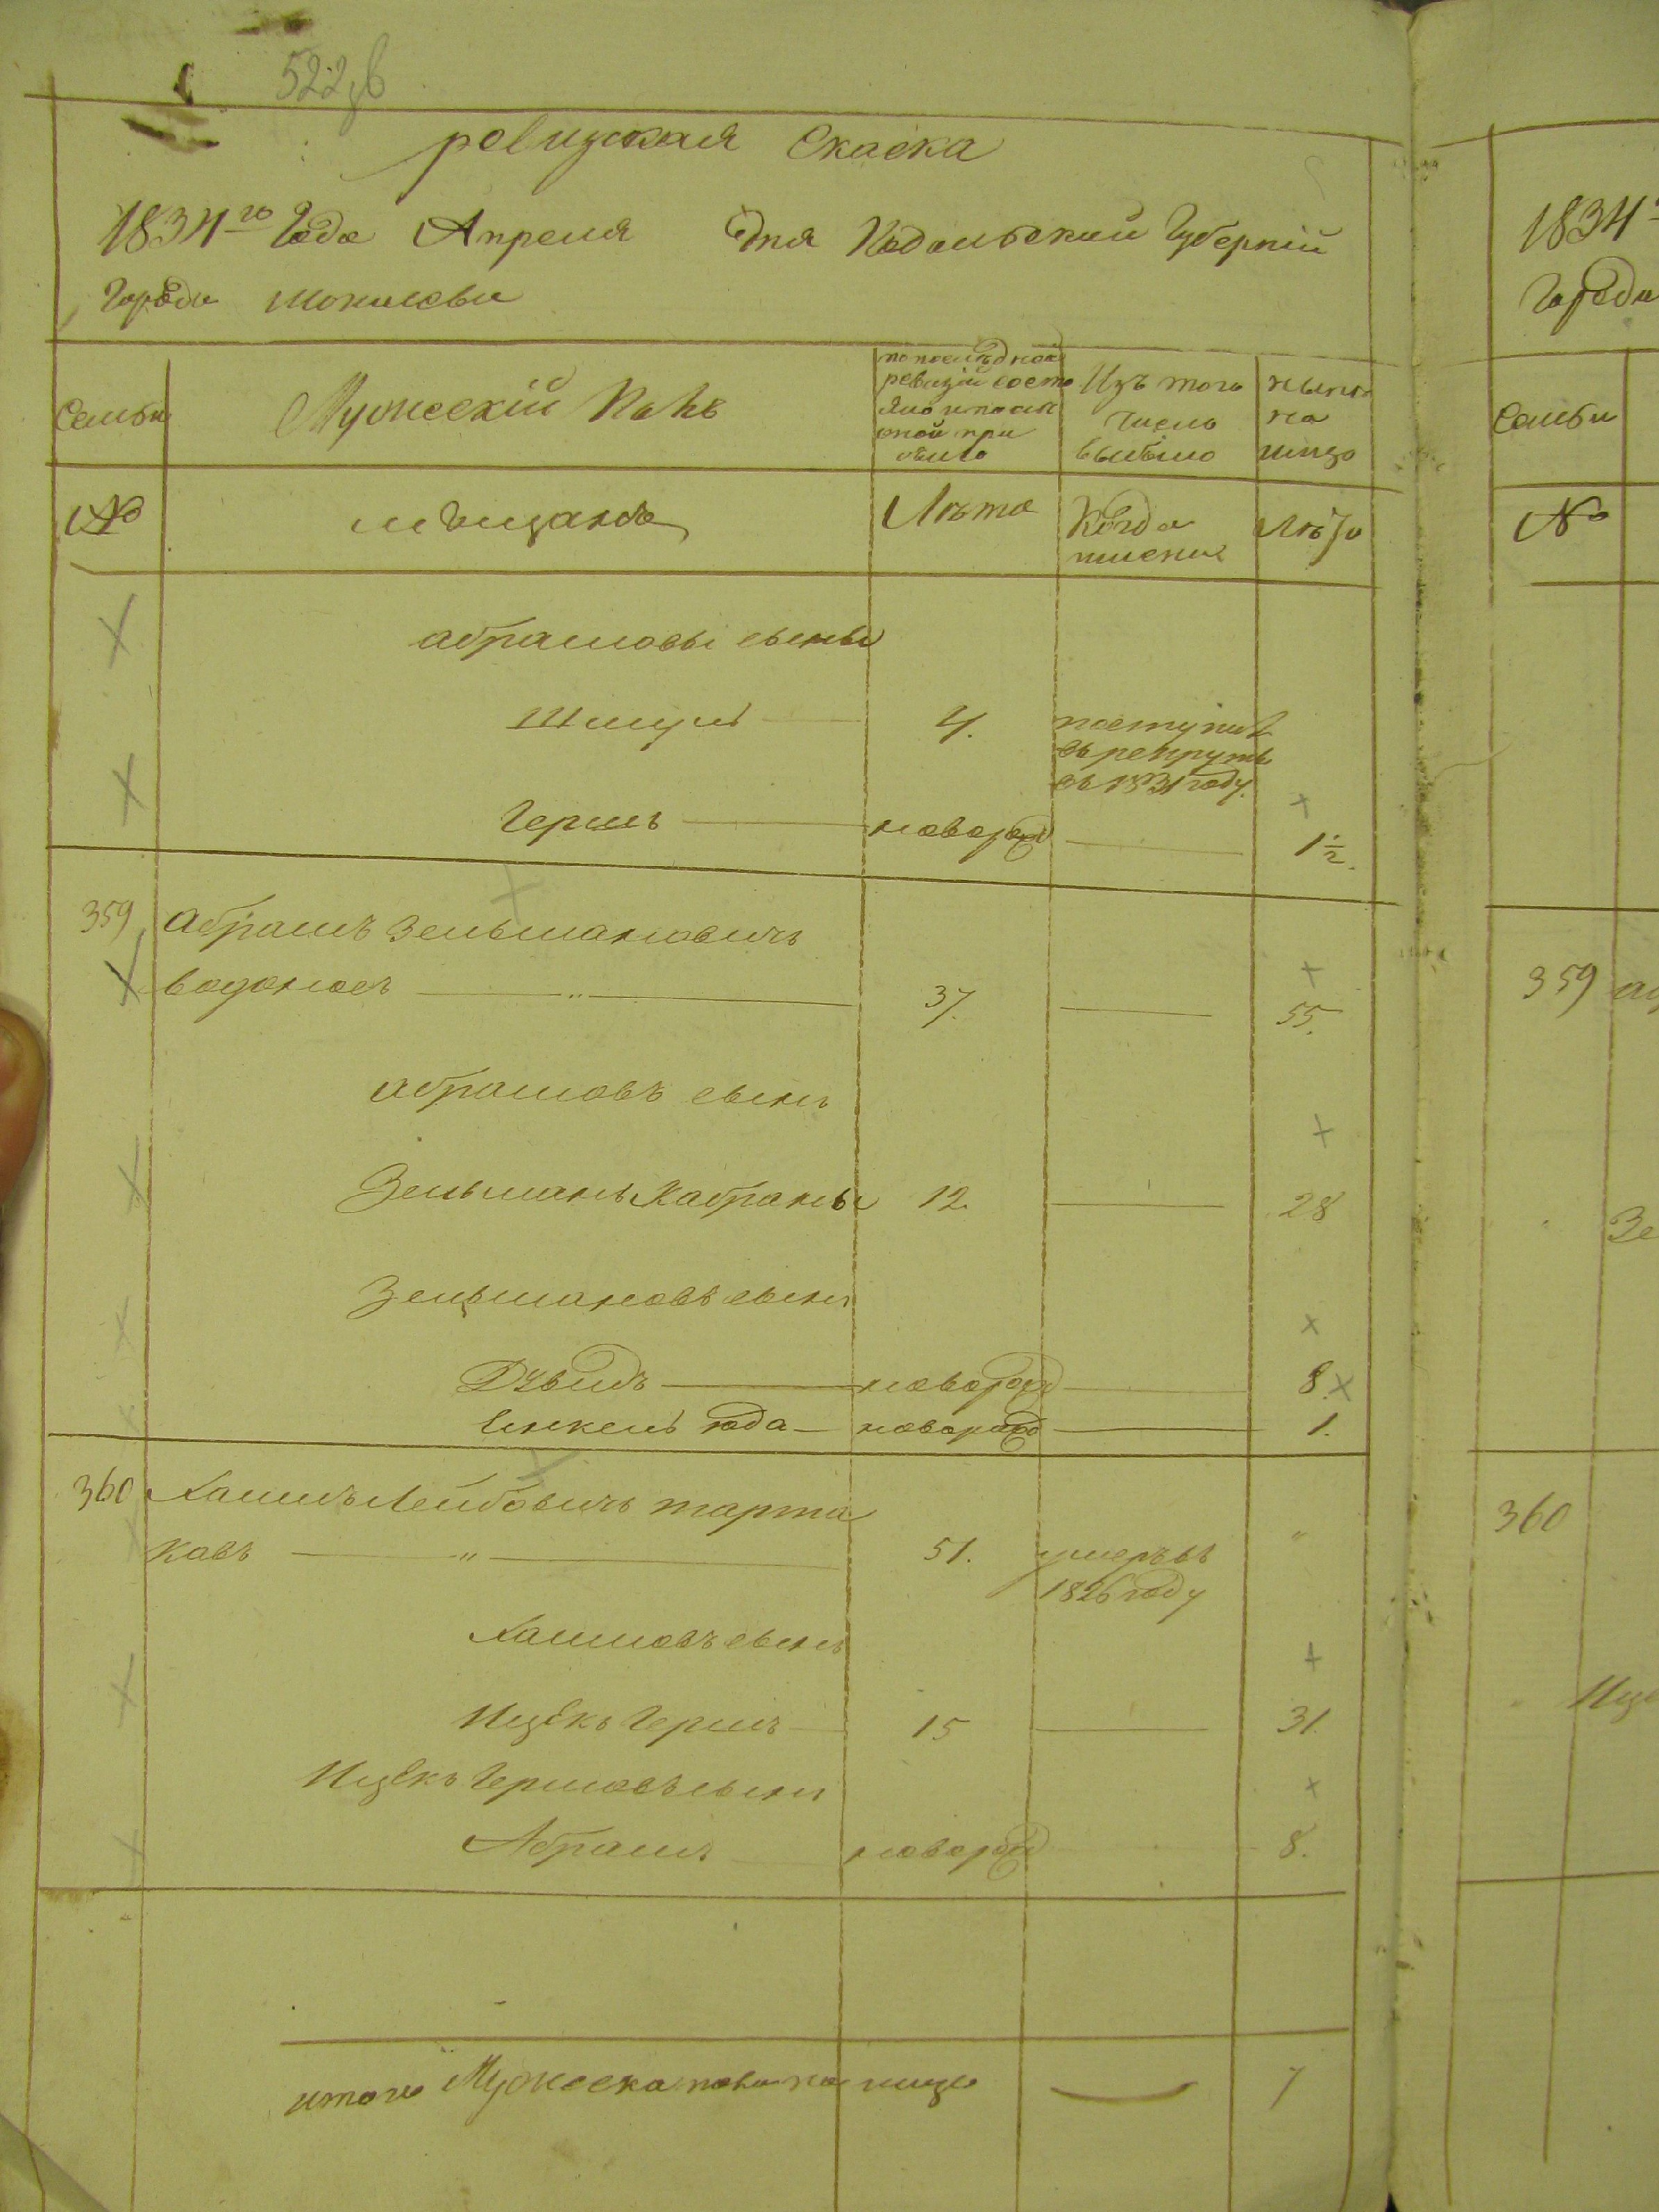 522 зв
ревизская Скаска
1834го Года Апреля дня Подольский Губерний
Города Могилева
Семьи
Мужеский Полъ
по последной
ревизий состо
яло и после
оной при
было
Изъ того
число
выбыло
ныне
на
лицо
№
мещанъ
Лета
Когда
именно
Лета
абрамовы сыны
Шмуль
4.
поступил
въ рекруты
въ 1831 году.
Гершъ
новорожд
1 1/2.
359
Абрамъ Зельмановичъ
водоносъ
37.
55.
абрамовъ сынъ
Зельманъ
12.
28
Зельмановъ сынъ
Дувидъ
новорожд
8.
Юда
новорожд
1.
360
Хаимъ Лейбовичъ тарта
ковъ
51.
умеръ въ
1826 году
Хаимовъ сынъ
Ицекъ Гершъ
15
31.
Ицекъ Гершовъ сынъ
Абрамъ
новорожд
8.
итого Мужеска пола на лицо
7
1834
Города
Семьи
№
359
Зе
360
Ице